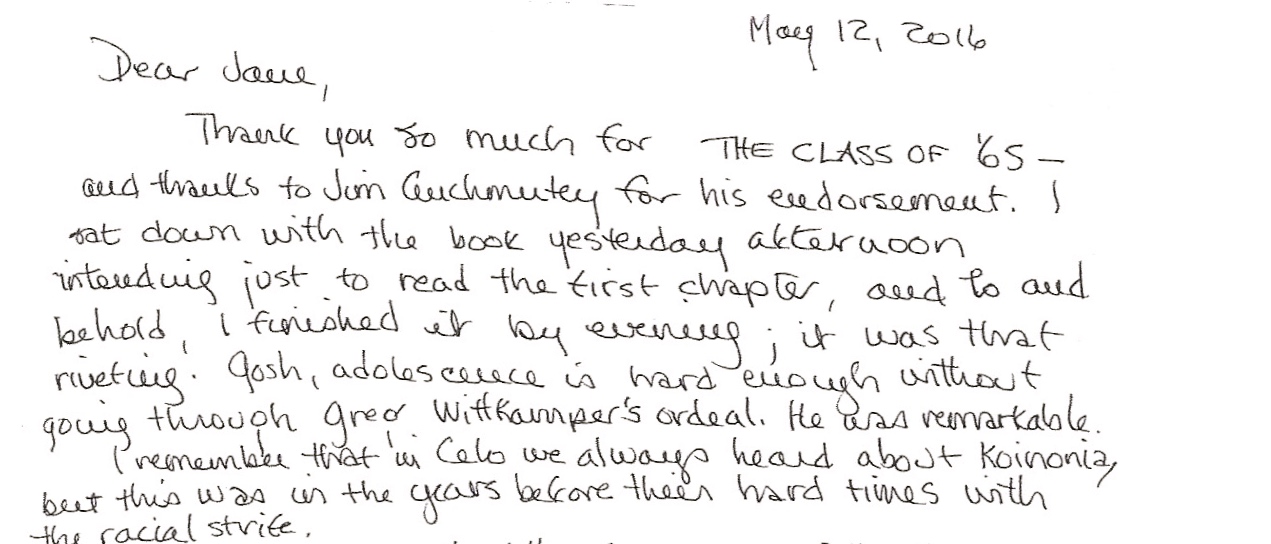 May 12, 2016
Dear Jane,
Thank you so much for THE CLASS OF '65 —
and thanks to Jim Auchmutey for his endorsement. I
sat down with the book yesterday afternoon
intending just to read the first chapter, and lo and
behold, I finished it by evening; it was that
riveting. Gosh, adolescence is hard enough without
going through Greg Wittkamper's ordeal. He was remarkable.
I remember that in Celo we always heard about Koinonia,
but this was in the years before their hard times with
the racial strife.